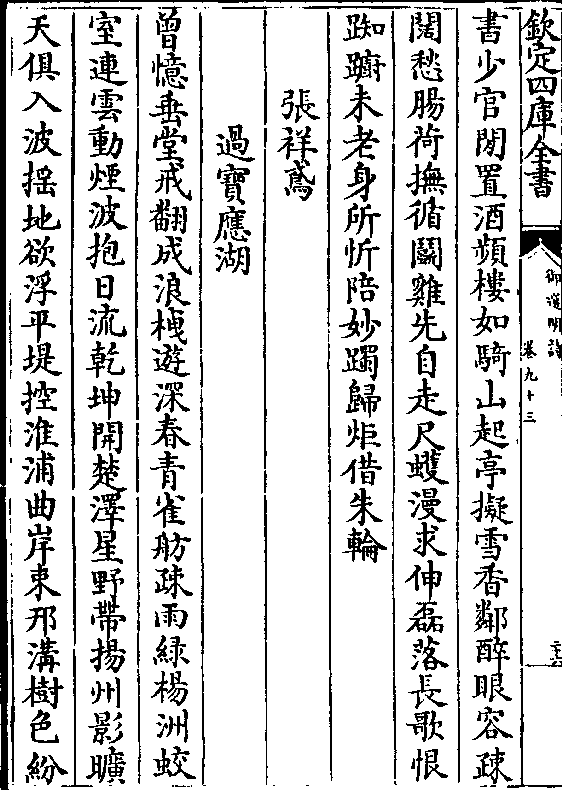 欽定四庫全書
御選明詩
卷九十三
書少官閒置酒頻樓如騎山起亭擬雪香鄰醉眼容疎
闊愁腸荷撫循鬭雞先自走尺蠖漫求伸磊落長歌恨
踟躕未老身所忻陪妙躅歸炬借朱輪
張祥鳶
過寶應湖
曾憶垂堂戒翻成浪栧遊深春青雀舫疎雨緑楊洲蛟
室連雲動煙波抱日流乾坤開楚澤星野帶揚州影曠
天俱入波揺地欲浮平堤控淮浦曲岸束邗溝樹色紛